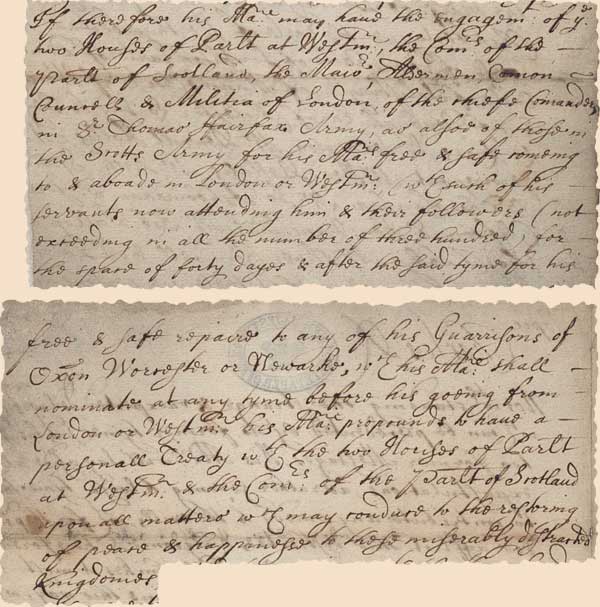 If therefore his Matie may have the engagemt of ye
two Houses of Parlt at Westmr, the Comrs of the
Parlt of Scotland, the Maior, Aldermen, Comon
Councell & Militia of London, of the chiefe Comanders
in Sr Thomas Fairfax Army, as alsoe of those in
the Scotts Army for his Maties free & safe comeing
to & aboade in London or Westmr, (wth such of his
servants now attending him & their followers (not
exceeding in all the number of three hundred) for
the space of forty dayes & after the said tyme for his
free & safe repaire to any of his Guarrisons of
Oxon Worcester or Newarke, wch his Matie shall
nominate at any tyme before his goeing from
London or Westmr his Matie propounds to have a
personall Treaty wth the two Houses of Parlt
at Westmr & the Comrs of the Parlt of Scotland
upon all matters wch may conduce to the restoring
of peace & happinesse to these miserably distracted
Kingdomes